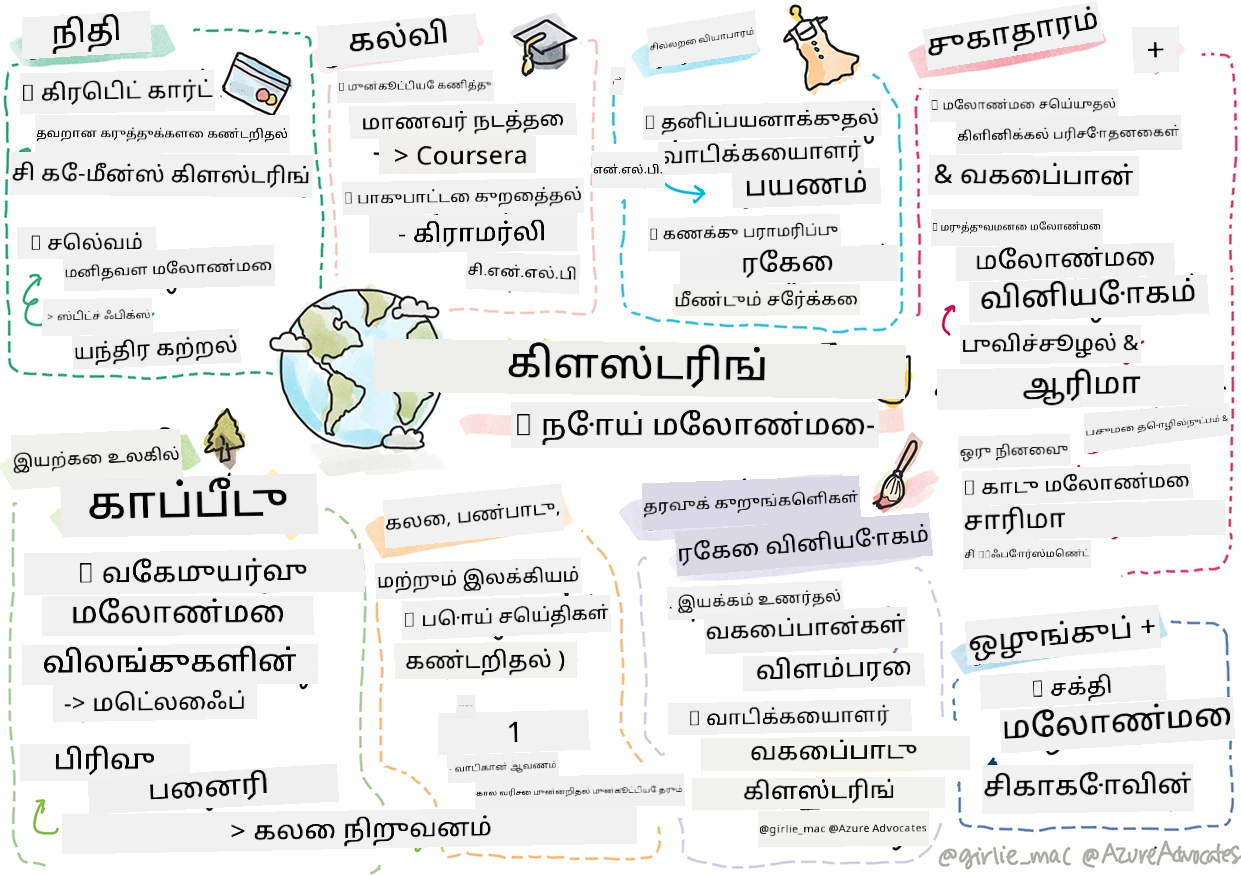 நிதி
கிரெடிட் கார்ட்
தவறான கருத்துக்களை கண்டறிதல்
சி கே-மீன்ஸ் கிளஸ்டரிங்
செல்வம்
மனிதவள மேலாண்மை
> ஸ்டிட்ச் ஃபிக்ஸ்
யந்திர கற்றல்
கல்வி
முன்கூட்டியே கணித்து
மாணவர் நடத்தை
> Coursera
பாகுபாட்டை குறைத்தல்
- கிராமர்லி
சி.என்.எல்.பி
சில்லறை வியாபாரம்
தனிப்பயனாக்குதல்
என்.எல்.பி.
வாடிக்கையாளர்
பயணம்
கணக்கு பராமரிப்பு
ரகேை
மீண்டும் சேர்க்கை
சுகாதாரம்
+
மேலாண்மை செய்யுதல்
கிளினிக்கல் பரிசோதனைகள்
& வகைப்பான்
மருத்துவமனை மேலாண்மை
மேலாண்மை
வினியோகம்
புவிச்சூழல் &
ஆரிமா
பசுமை தொழில்நுட்பம் &
ஒரு நினைவு
காடு மேலாண்மை
சாரிமா
கிளஸ்டரிங்
நோய் மேலாண்மை-
இயற்கை உலகில்
காப்பீடு
வகேமுயர்வு
மேலாண்மை
விலங்குகளின்
-> மெடெலஃைப்
பிரிவு
பனைரி
> கலை நிறுவனம்
கலை, பண்பாடு,
மற்றும் இலக்கியம்
பொய் செய்திகள்
கண்டறிதல் )
1
- வாடிகான் ஆவணம்
கால வரிசை முன்னறிதல் முன்கூட்டியே தேரும்
தரவுக் குறுங்களெிகள்
ரகேை வினியோகம்
இயக்கம் உணர்தல்
வகைப்பான்கள்
விளம்பரை
வாடிக்கையாளர்
வகைப்பாடு
கிளஸ்டரிங்
@girlie_mac @Azure Advocates
ஒழுங்குப் +
சக்தி
மேலாண்மை
சிகாகோவின்
@girlie_mac @AzureAdvocates